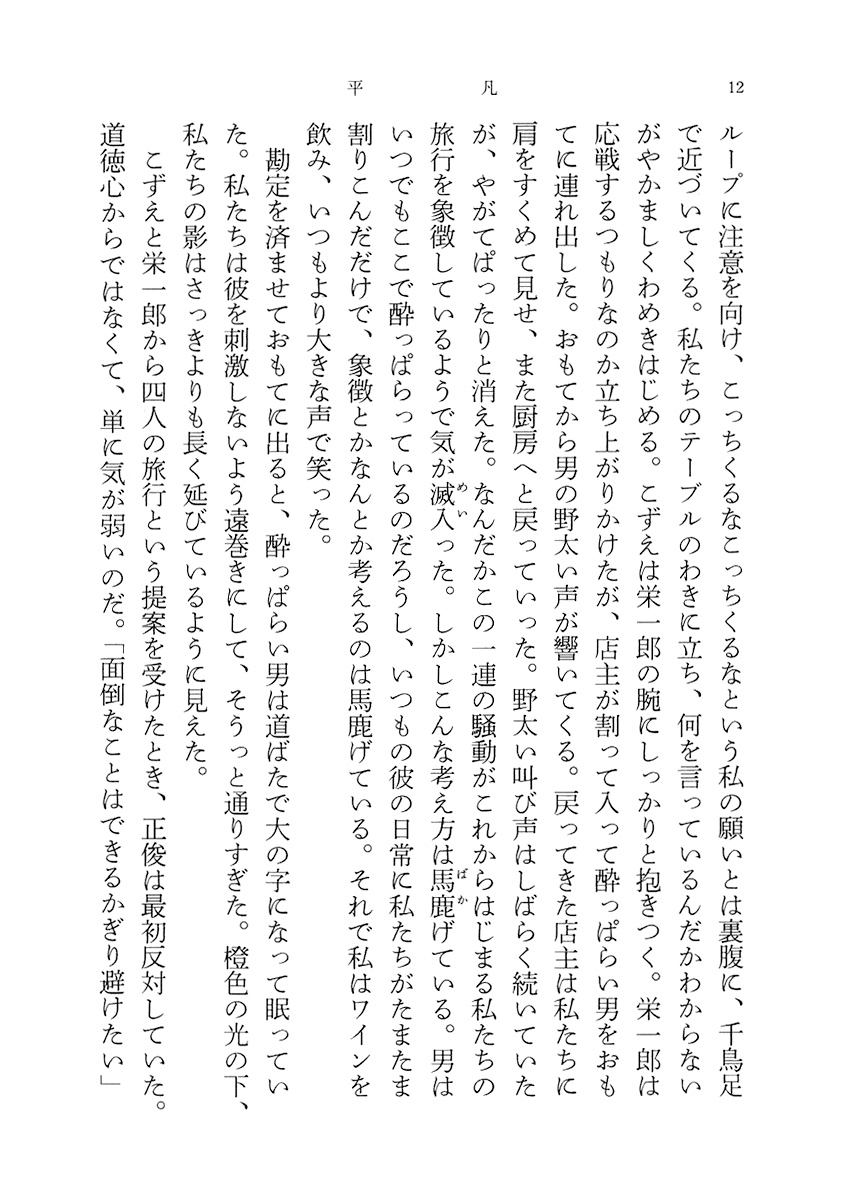 12
平凡
ループに注意を向け、こっちくるなこっちくるなという私の願いとは裏腹に、千鳥足
で近づいてくる。私たちのテーブルのわきに立ち、何を言っているんだかわからない
がやかましくわめきはじめる。こずえは栄一郎の腕にしっかりと抱きつく。栄一郎は
応戦するつもりなのか立ち上がりかけたが、店主が割って入って酔っぱらい男をおも
てに連れ出した。おもてから男の野太い声が響いてくる。戻ってきた店主は私たちに
肩をすくめて見せ、また厨房へと戻っていった。野太い叫び声はしばらく続いていた
が、やがてぱったりと消えた。なんだかこの一連の騒動がこれからはじまる私たちの
旅行を象徴しているようで気が滅入った。しかしこんな考え方は馬鹿げている。男は
いつでもここで酔っぱらっているのだろうし、いつもの彼の日常に私たちがたまたま
割りこんだだけで、象徴とかなんとか考えるのは馬鹿げている。それで私はワインを
飲み、いつもより大きな声で笑った。
勘定を済ませておもてに出ると、酔っぱらい男は道ばたで大の字になって眠ってい
た。私たちは彼を刺激しないよう遠巻きにして、そうっと通りすぎた。橙色の光の下、
私たちの影はさっきよりも長く延びているように見えた。
こずえと栄一郎から四人の旅行という提案を受けたとき、正俊は最初反対していた。
道徳心からではなくて、単に気が弱いのだ。「面倒なことはできるかぎり避けたい」